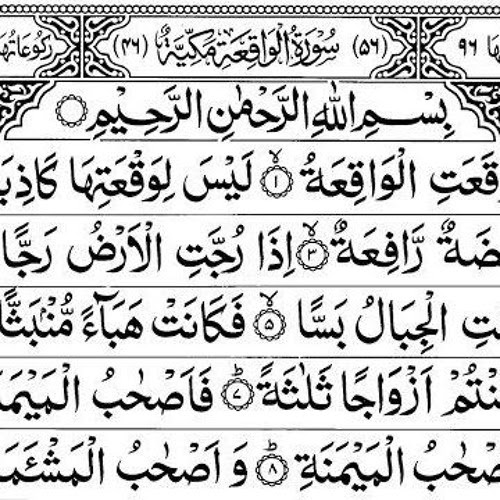 ها ٩٦ (٥٦) سُوْرَةُ الْوَاقِعَةِ مَكِّيَّةٌ (٤٦) رکوعاتها
بِسْمِ اللهِ الرَّحْمٰنِ الرَّحِيْمِ
قَعَتِ الْوَاقِعَةُ ۙ﴿١﴾ لَيْسَ لِوَقْعَتِهَا كَاذِبَ
ضَةٌ رَّافِعَةٌ ۙ﴿٣﴾ اِذَا رُجَّتِ الْاَرْضُ رَجًّا
تِ الْجِبَالُ بَسًّا ۙ﴿٥﴾ فَكَانَتْ هَبَآءً مُّنْۢبَثًّا
نْتُمْ اَزْوَاجًا ثَلٰثَةً ؕ﴿٧﴾ فَاَصْحٰبُ الْمَيْمَ
صْحٰبُ الْمَيْمَنَةِ ؕ﴿٨﴾ وَ اَصْحٰبُ الْمَشْئَمَ